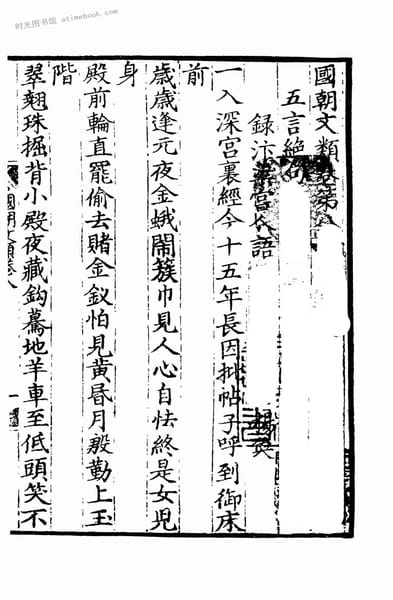 时光图书馆 atimebook.com
國朝文類卷第八
五言絶句
録汴宫人語
一入深宫裏經今十五年長因批帖子呼到御床
前
歲歲逢元夜金蛾鬧簇巾見人心自怯終是女兒
身
殿前輪直罷偷去賭金釵怕見黄昏月殷勤上玉
階
翠翹珠掘背小殿夜藏鈎驀地羊車至低頭笑不
國朝文類卷八
一